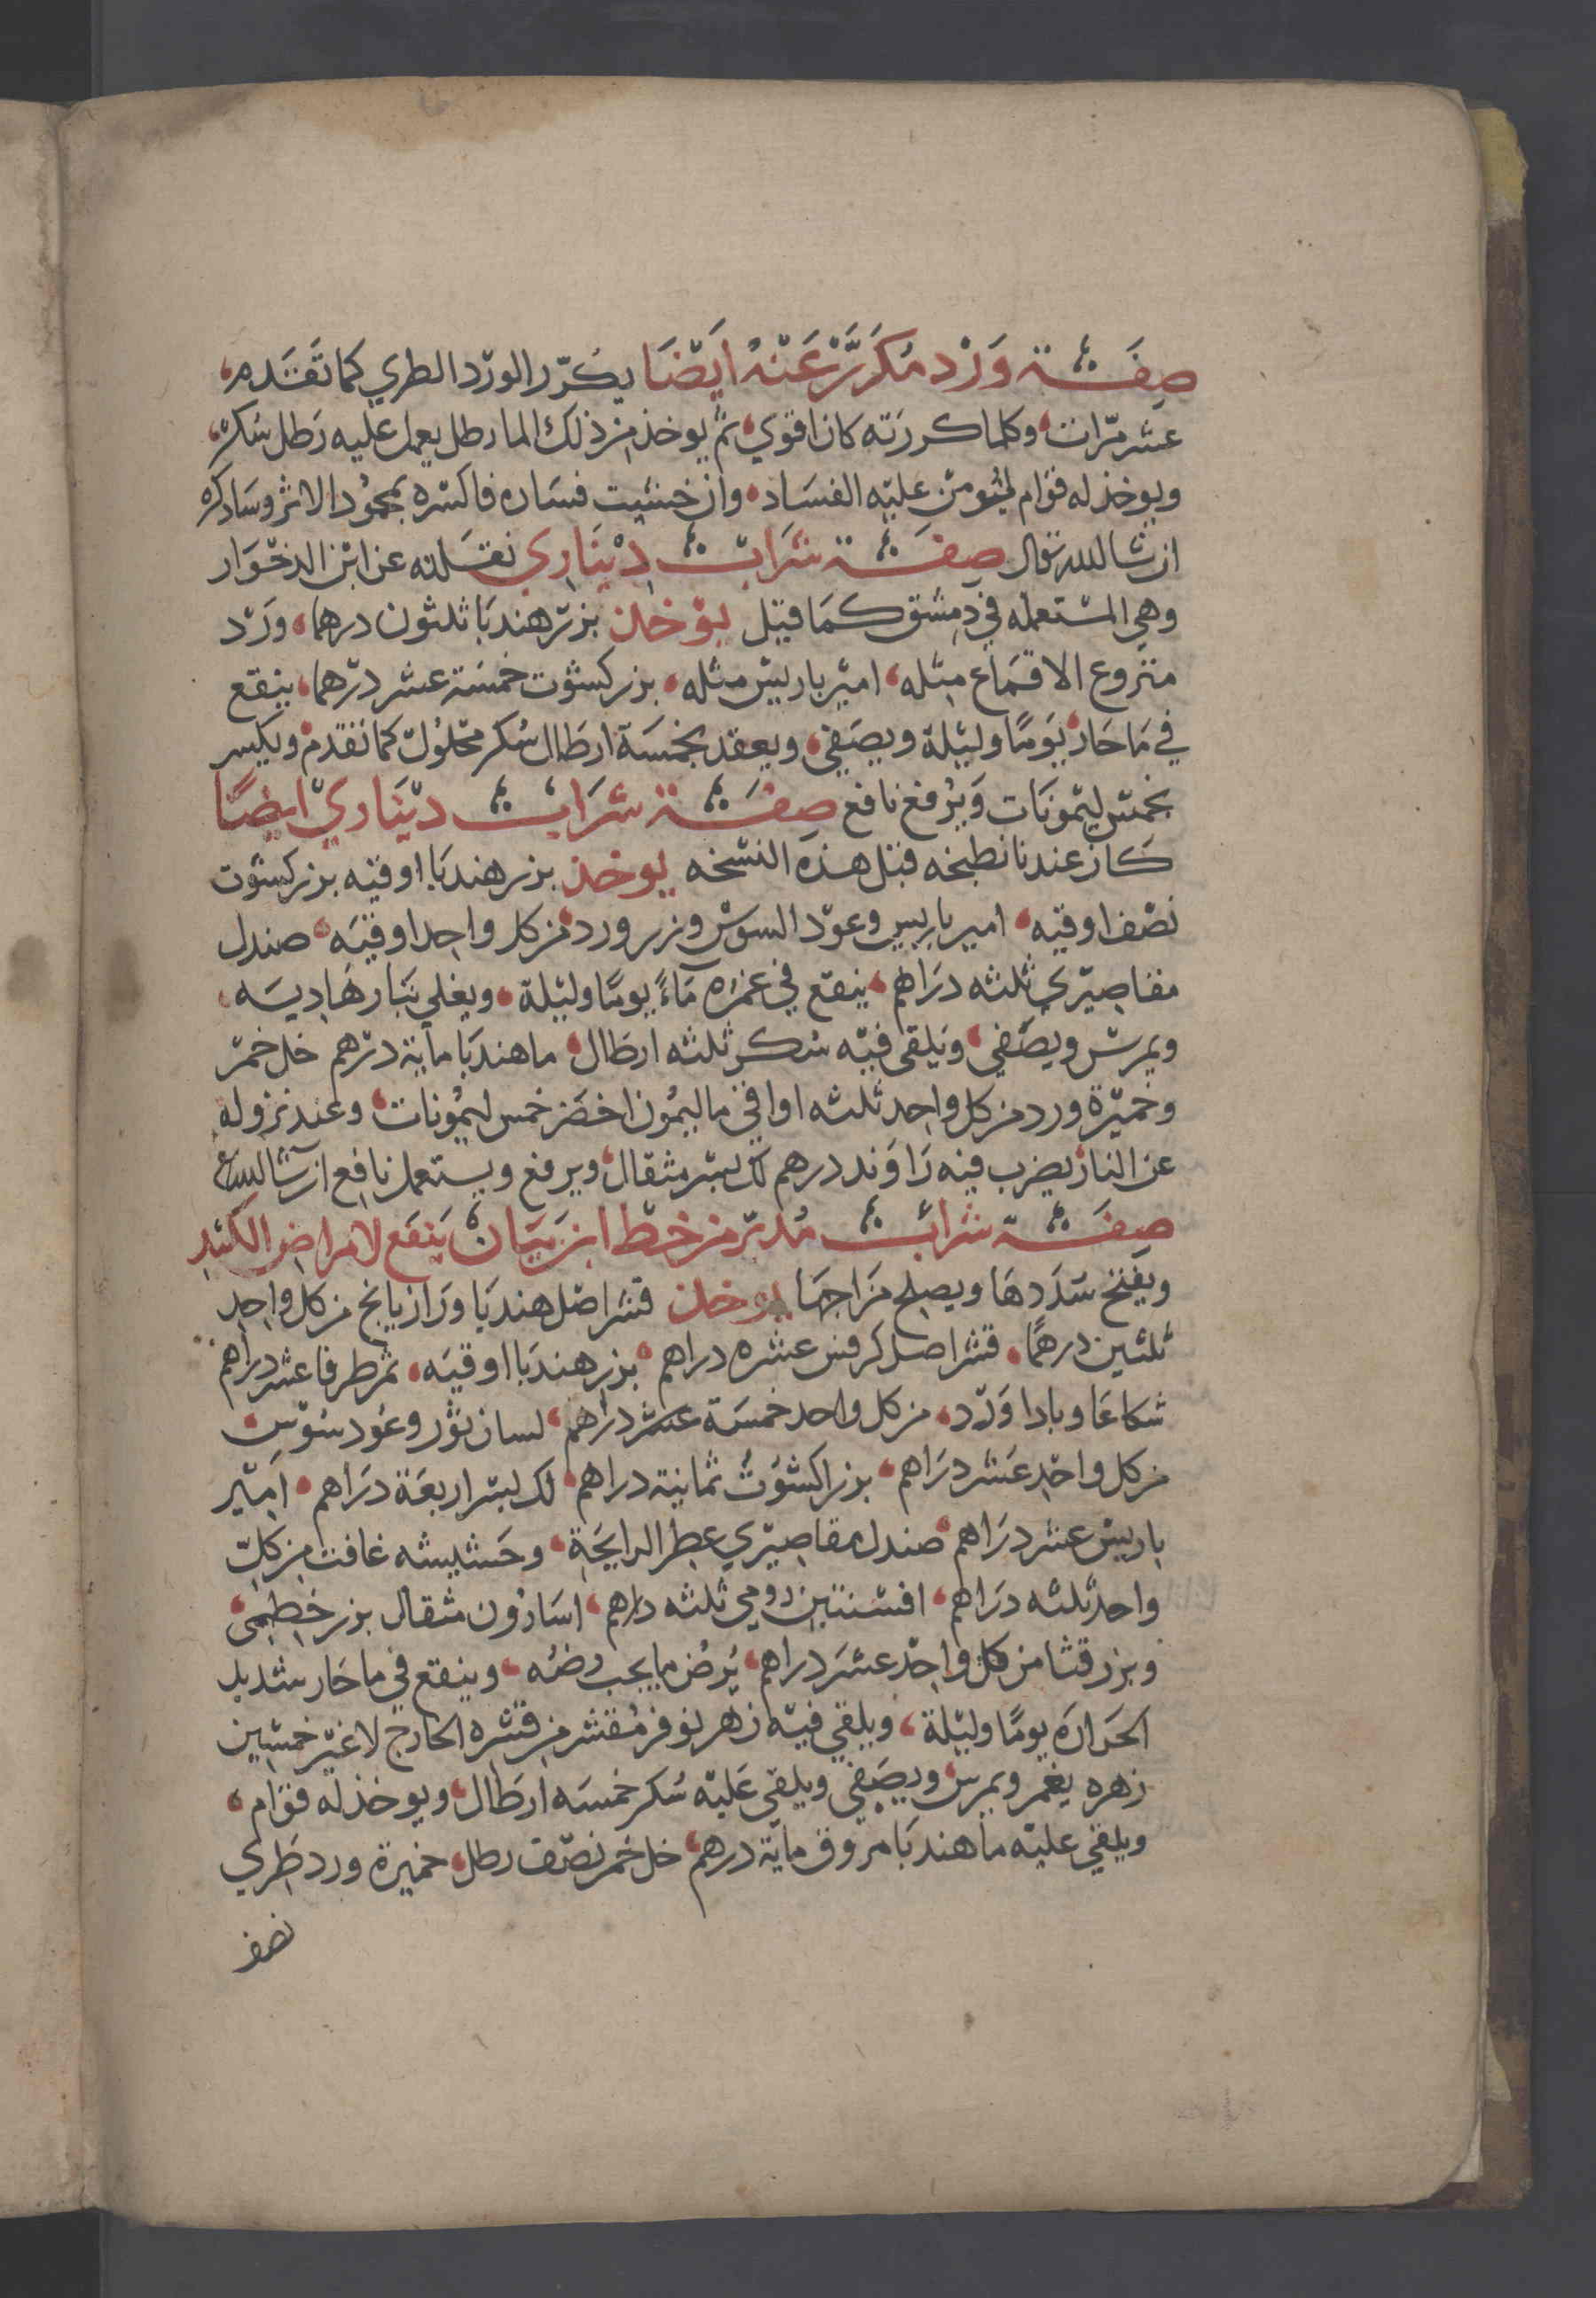 صِفَة وَرْد مُكَرَّرْ عَنْهُ اَيْضَا يكرّر الورْد الطري كما تَقَدم،
عشر مرّات، وكلما كررَته كان اقوي، ثم يوخذ من ذلك الما رطل يعمل عليه رَطل سُكر،
ويوخذ له قوَام ليُومَن عليْه الفسَاد، وان خشيت فسَاده فاكسْره بحمُود الاترج وسَاذكره
ان شا الله تعالى صِفَة شَرَابْ دِيْنَارِي نقَلته عن ابن الدخْوَار
وهي المسْتعمله في دِمشق كمَا قيْل يوْخذ بزرْ هندبَا ثلثون درهما، ورْد
منزوع الاقمَاع مثله، اميْر باريس مثله، بزر كشوْت خمْسَة عشر درْهما، ينقع
في مَا حَار يَومًا وليْلة ويصَفي، ويعقد بخمسَة ارطَال سُكر محْلوُل كما تقدم ويكسر
بخمسْ ليْمونَات وَيرُفع نافع صِفَة شرَابْ ديْنَاريّ ايضًا
كَان عندنا نطبخه قبْل هذه النسْخه يوخذ بزر هندبَا اوقيه بزر كشوت
نصْف اوقيه، امير باريس وعوْد السوسْ وزر ورد من كل واحِد اوقيَه، صندل
مقاصِيْري ثلثه درَاهم، ينقع في غمرَه مَاءً يومًا وليْلة، ويغلي بنَار هَادِيَه،
ويمرسْ ويصَفي، ويَلقى فيْه سُكر ثلثه ارطَال، ما هندبَا مايَة درْهم خل خمْر
وخميْرَة ورد من كل واحِد ثلثه اواقي ما ليمُون اخضَر خمس ليمُونات، وعند نزوله
عن النار يضرب فيْه رَاوَند درهم لك بسْر مثقال، ويرفع ويستعمل نافع ان شا الله
صِفَة شرابْ مُدبّر من خط ابن بَيَان يَنفَع لامراض الكَبد
ويفتح سدَدهَا ويصلح مزَاجهَا يوخذ قشر اصْل هندبَا ورَازيانج من كل واحِد
ثلثين درهمًا، قشر اصل كرفس عشره دراهم، بزر هندبَا اوقيَه، ثمر طرفا عشر دراهم
شكاعَا وباداوَرْد، من كل واحد خمسَة عشر درَاهم، لسان ثوْر وعُود سُوْس
من كل واحْد عَشر درَاهم، بزر اكشوَت ثمانية دراهم، لك بسْر اربعَة درَاهم، امِيْر
باريسْ عشر درَاهم، صندل مقاصِيْري عطر الرايحَة، وحَشيشه غافت من كلّ
واحد ثلثه درَاهم، افسْنتين رومي ثلثه دراهم، اسَارُون مثقال بزر خطمى،
وبزر قثا من كل واحْد عشرَ دراهم، يُرض ما يجب رضُه، وينقع في ما حَار شديد
الحَرارَه يومًا وليْلة، ويلقي فيْه زهْر نوفر مُقشر من قشره الخارج لا غيْر خمسْين
زهره يغمر ويمرس، ويصَفي ويلقي عَليْه سُكر خمسَه ارطَال، ويوخذ له قوَام،
ويلقي عليْه ما هندبَا مروق مايَة درهم، خل خمر نصْف رطل، خميرة ورد طَري
نصف